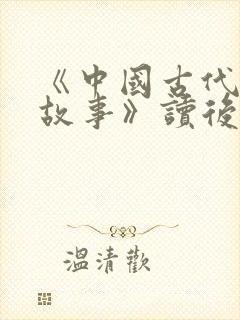 《中國古代
故事》讀後
溫清歡